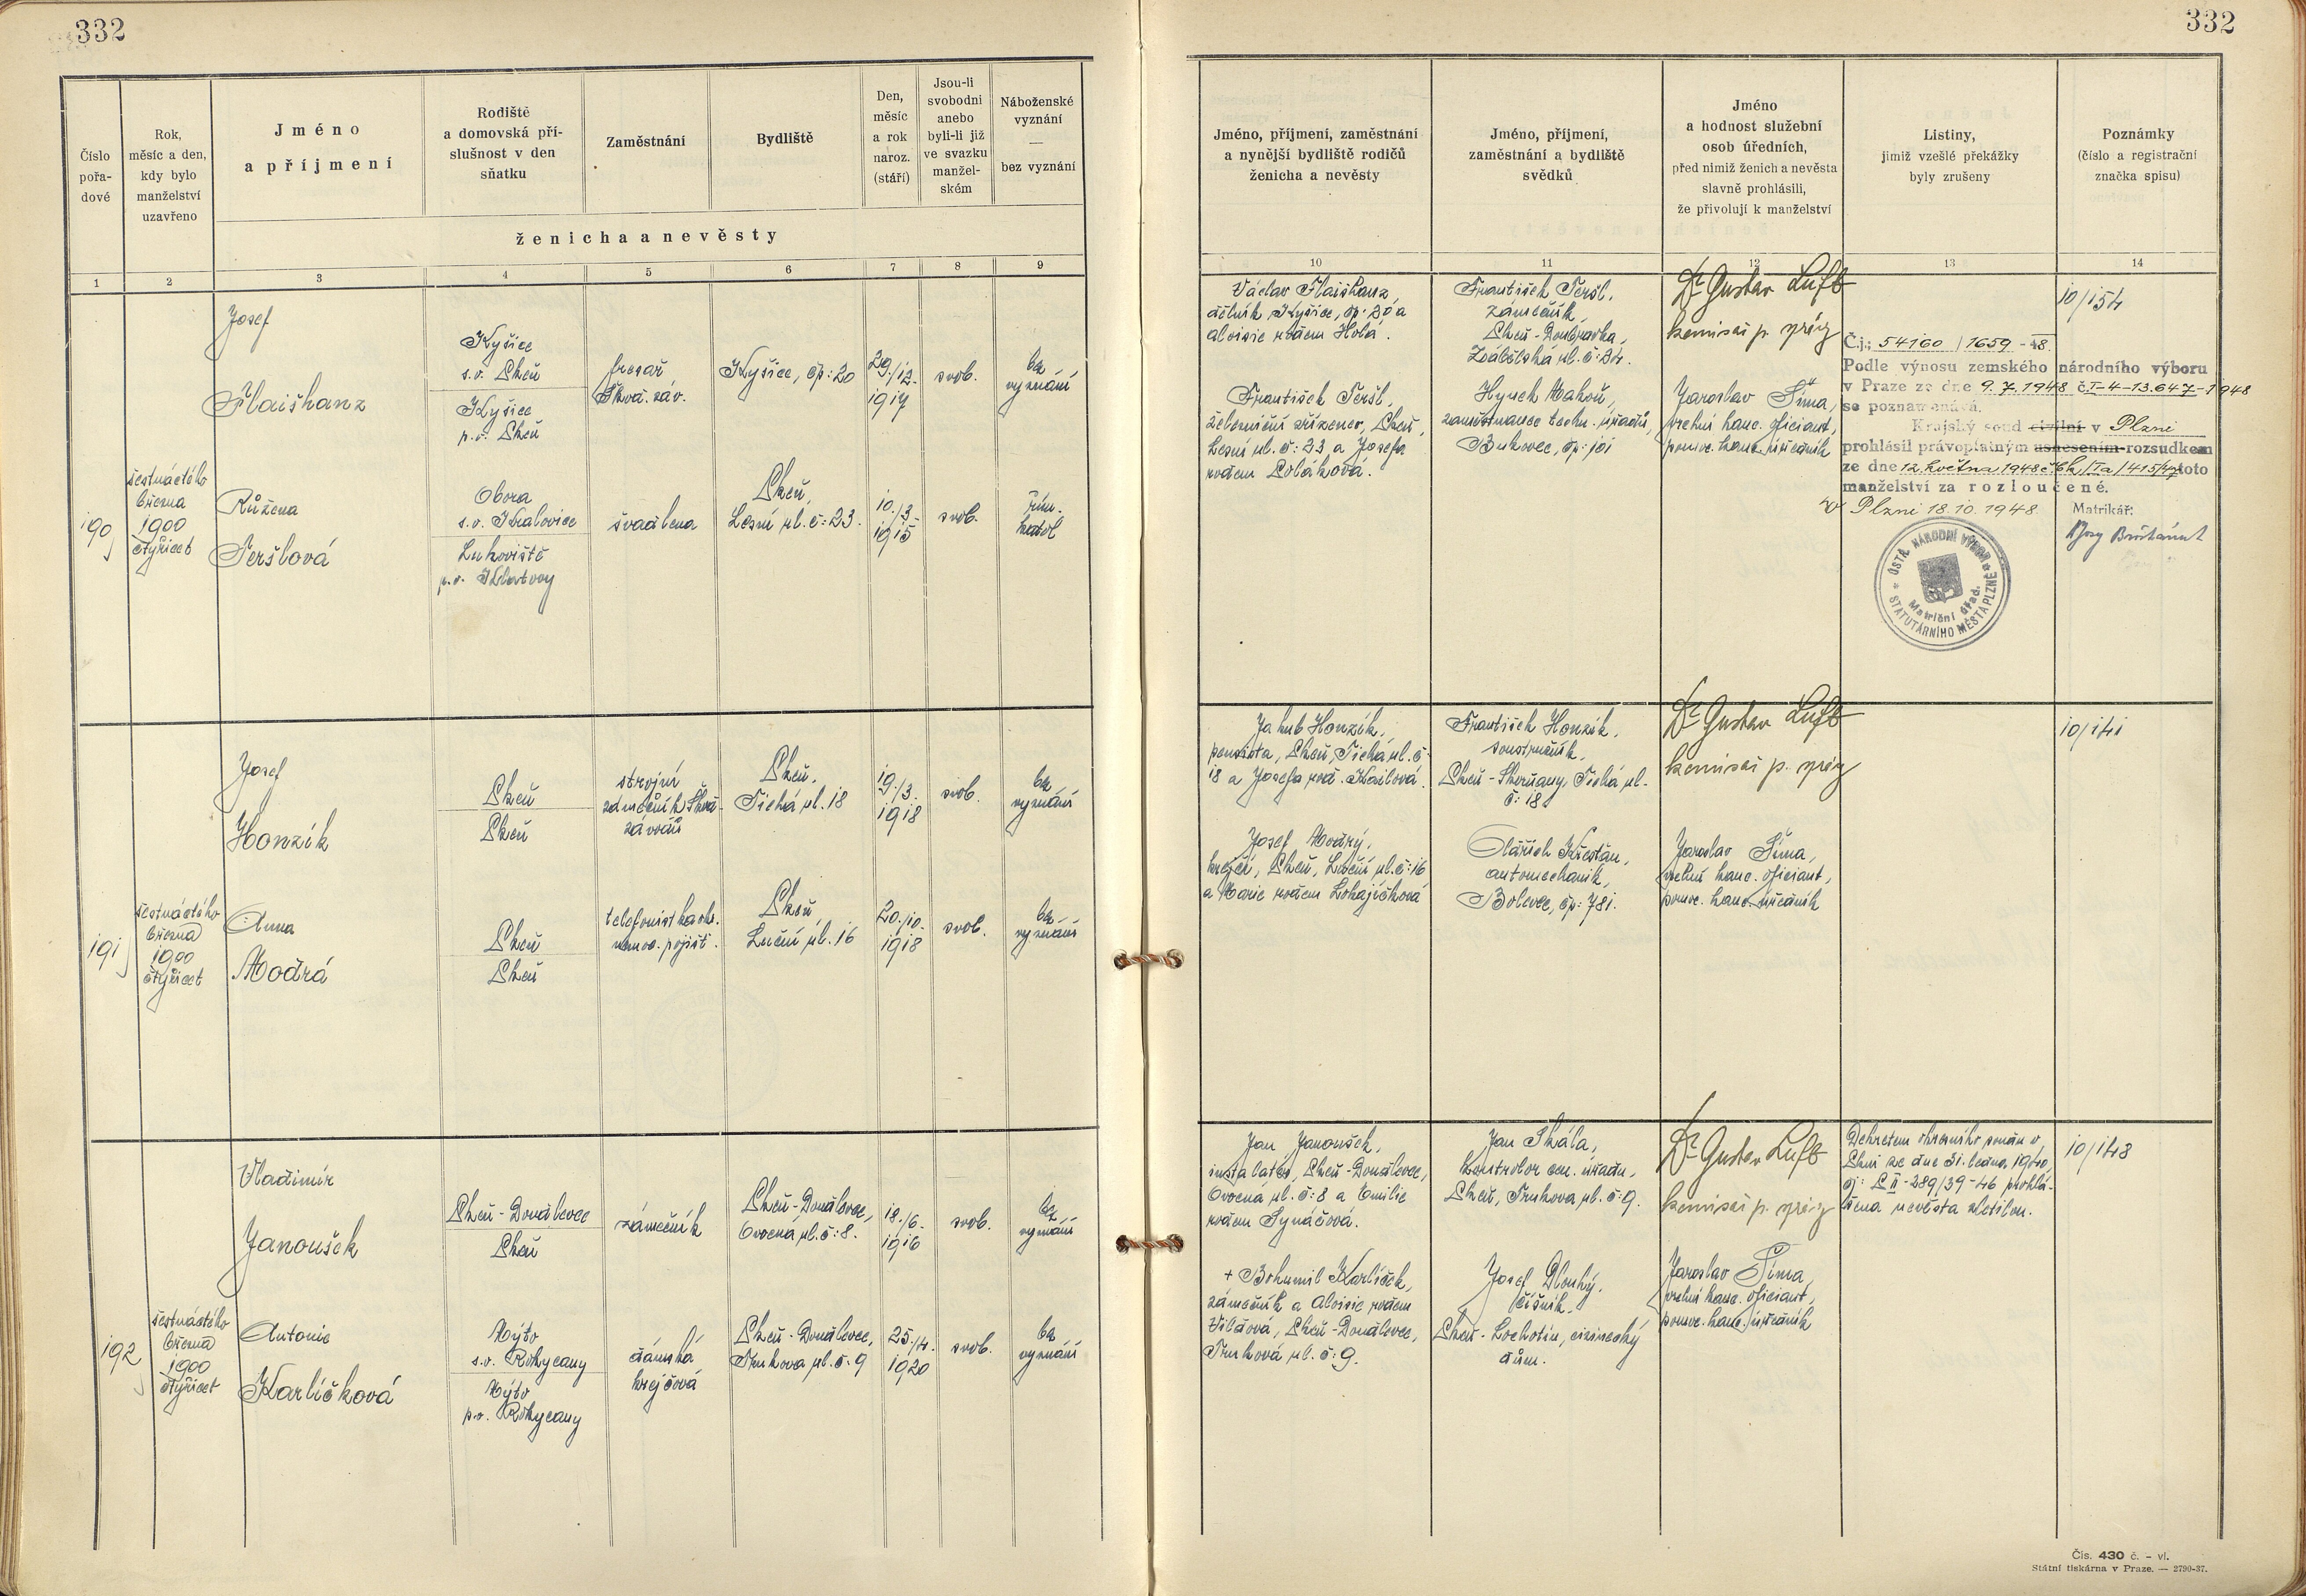 332
332
Číslo pořa-dové
Rok, měsíc a den, kdy bylo manželství uzavřeno
Jméno
a příjmení
Rodiště
a domovská pří-
slušnost v den
sňatku
Zaměstnání
Bydliště
Den,
měsíc
a rok
naroz.
(stáří)
Jsou-li
svobodni
anebo
byli-li již
ve svazku
manžel-
ském
Náboženské
vyznání
—
bez vyznání
ženicha a nevěsty
1 2 3 4 5 6 7 8 9
190
šestnáctého
března
1900
čtyřicet
Josef
Flaišhanz
Kyšice
s.o. Plzeň
Kyšice
p.o. Plzeň
fresař
Škod. záv.
Kyšice, čp: 20
29./12.
1917
svob.
bez
vyznání
Růžena
Teršlová
Obora
s.o. Kralovice
Luhoviště
p.o. Klatovy
švadlena
Plzeň,
Lesní ul. č: 23.
10./3.
1915
svob.
řím.
katol
191
šestnáctého
března
1900
čtyřicet
Josef
Honzík
Plzeň
Plzeň
strojní
zámečník Škod.
závodů
Plzeň,
Tichá ul. 18
19./3.
1918
svob.
bez
vyznání
Anna
Modrá
Plzeň
Plzeň
telefonistka okr.
nemoc. pojišť.
Plzeň,
Luční ul. 16
20./10.
1918
svob.
bez
vyznání
192
šestnáctého
března
1900
čtyřicet
Vladimír
Janoušek
Plzeň-Doudlevce
Plzeň
zámečník
Plzeň-Doudlevce,
Ovocná ul. č: 8.
18./6.
1916
svob.
bez
vyznání
Antonie
Karlíčková
Mýto
s.o. Rokycany
Mýto
p.o. Rokycany
dámská
krejčová
Plzeň-Doudlevce,
Trnkova ul. č. 9
25./4.
1920
svob.
bez
vyznání
Jméno, příjmení, zaměstnání
a nynější bydliště rodičů
ženicha a nevěsty
Jméno, příjmení,
zaměstnání a bydliště
svědků
Jméno
a hodnost služební
osob úředních,
před nimiž ženich a nevěsta
slavně prohlásili,
že přivolují k manželství
Listiny,
jimiž vzešlé překážky
byly zrušeny
Poznámky
(číslo a registrační
značka spisu)
10 11 12 13 14
Václav Flaišhanz,
dělník, Kyšice, čp: 20 a
Aloisie rodem Holá.
František Teršl,
železniční zřízenec, Plzeň,
Lesní ul. č: 23 a Josefa
rodem Poláková.
František Teršl,
zámečník,
Plzeň-Doubravka,
Zábělská ul. č: 34.
Hynek Makoň,
zaměstnanec techn. úřadů,
Bukovec, čp: 101
Dr Gustav Luft
komisař p. správy
Jaroslav Šíma,
vrchní kanc. oficiant,
pomoc. kanc. úředník
Č.j.: 54160 / 1659 - 48.
Podle výnosu zemského národního výboru
v Praze ze dne 9. 7. 1948 č. I-4-13.647-1948
se poznamenává.
Krajský soud civilní v Plzni
prohlásil právoplatným usnesením-rozsudkem
ze dne 12. května 1948 č. 6k/Ia/415/47 toto
manželství za rozloučené.
V Plzni 18. 10. 1948
Matrikář:
OSTŘ. NÁRODNÍ VÝBOR
STATUTÁRNÍHO MĚSTA PLZNĚ
Matriční úřad.
10/154
Jakub Honzík,
pensista, Plzeň, Tichá ul. č:
18 a Josefa rod. Kailová.
Josef Modrý,
krejčí, Plzeň, Luční ul. č: 16
a Marie rodem Lokajíčková
František Honzík,
soustružník,
Plzeň-Skvrňany, Tichá ul.
č: 18
Oldřich Křesťan,
automechanik,
Bolevec, čp: 781.
Dr Gustav Luft
komisař p. správy
Jaroslav Šíma,
vrchní kanc. oficiant,
pomoc. kanc. úředník
10/141
Jan Janoušek,
instalatér, Plzeň-Doudlevce,
Ovocná ul. č: 8 a Emilie
rodem Synáčová.
+ Bohumil Karlíček,
zámečník a Aloisie rodem
Vildová, Plzeň-Doudlevce,
Trnková ul. č: 9.
Jan Skála,
kontrolor cen. úřadu,
Plzeň, Trnkova ul. č: 9.
Josef Dlouhý,
číšník.
Plzeň-Lochotín, cizinecký
dům.
Dr Gustav Luft
komisař p. správy
Jaroslav Šíma,
vrchní kanc. oficiant,
pomoc. kanc. úředník
Dekretem okresního soudu v
Plzni ze dne 31. ledna 1940,
čj: P II-289/39-46 prohlá-
šena nevěsta zletilou.
10/148
Čís. 430 č. – vl.
Státní tiskárna v Praze. — 2790-37.